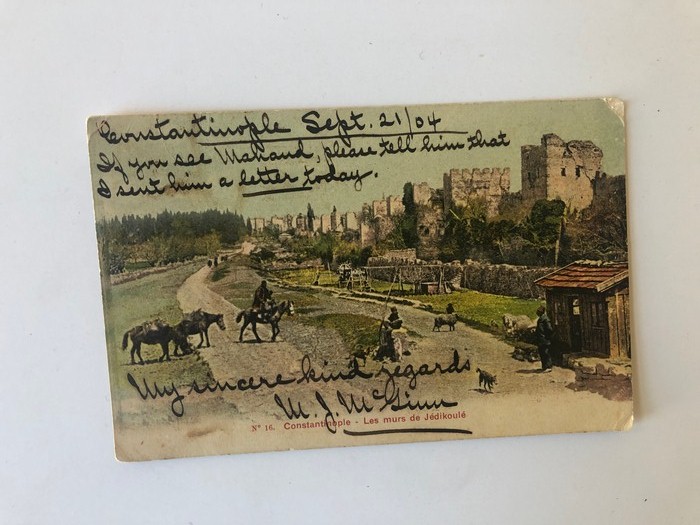 Constantinople Sept. 21/04
If you see Mahaud, please tell him that
I sent him a letter today.
My sincere kind regards
M. J. McGinn
Nº 16. Constantinople - Les murs de Jédikoulé